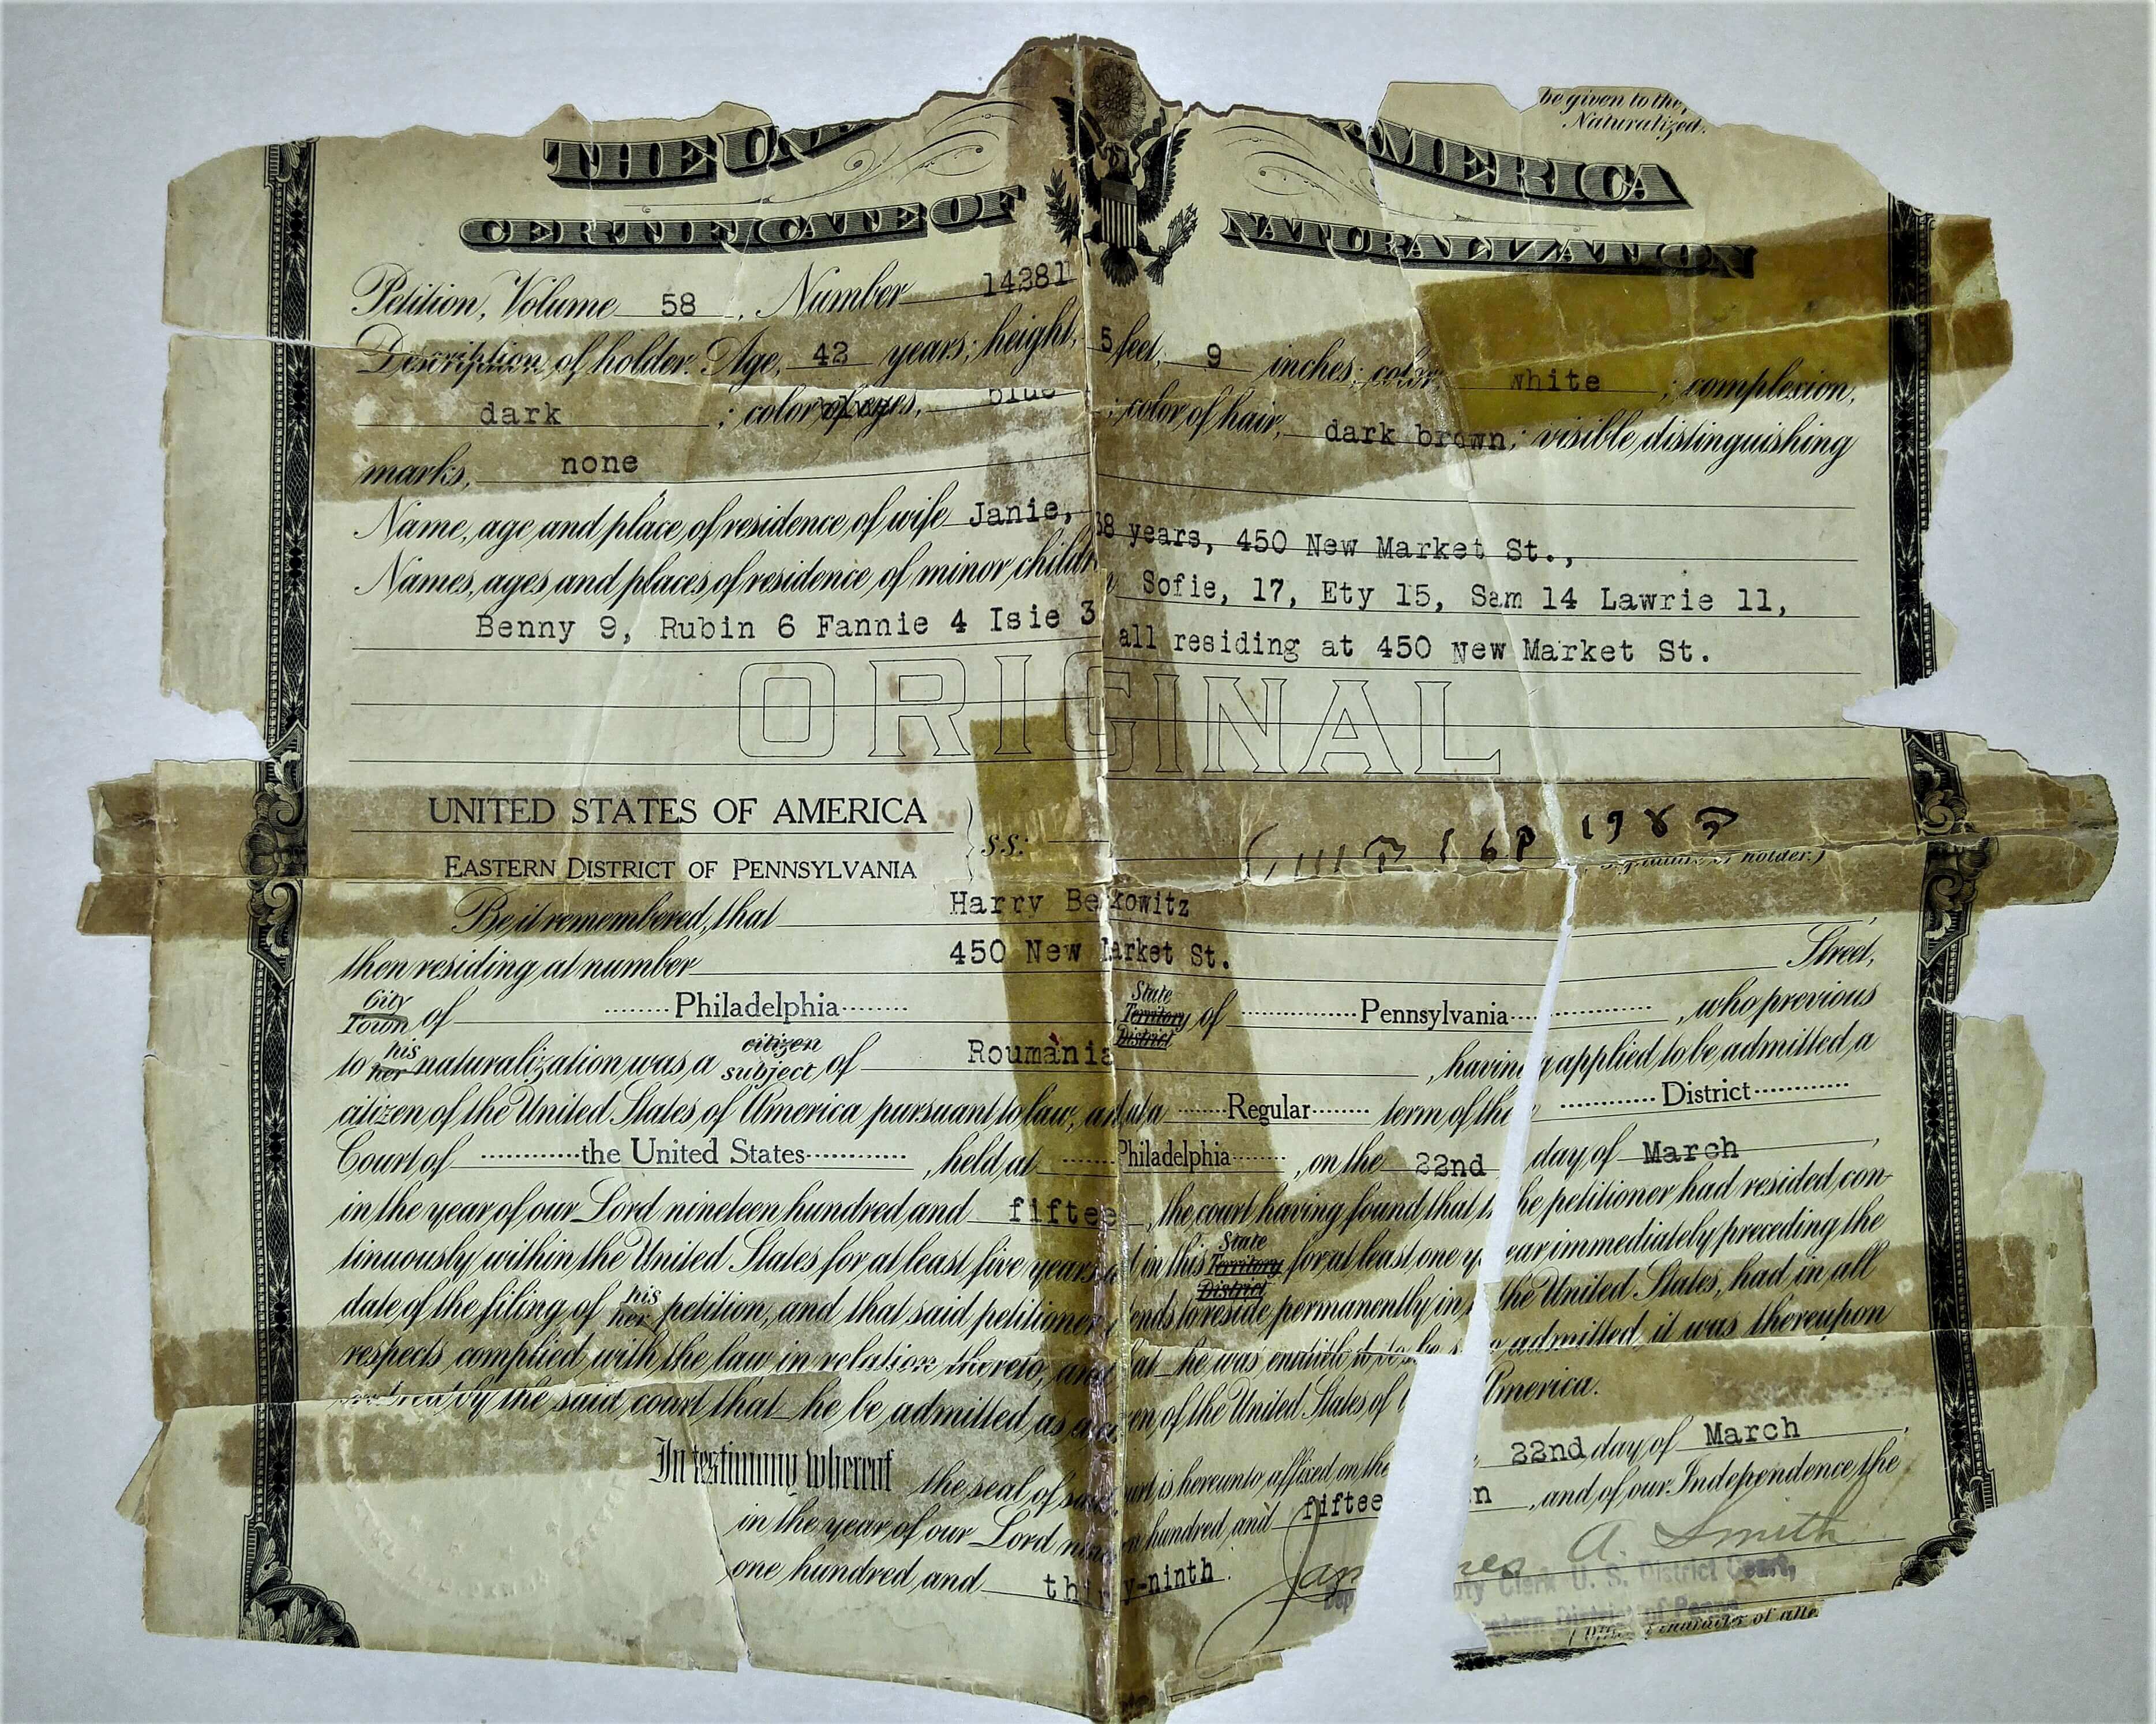 be given to the
Naturalized.
THE UN AMERICA
CERTIFICATE OF NATURALIZATION
Petition, Volume 58, Number 14281
Description of holder: Age, 42 years; height, 5 feet, 9 inches; color, white; complexion,
dark; color of eyes, blue; color of hair, dark brown; visible distinguishing
marks, none
Name, age and place of residence of wife Janie, 38 years, 450 New Market St.,
Names, ages and places of residence of minor children Sofie, 17, Ety 15, Sam 14 Lawrie 11,
Benny 9, Rubin 6 Fannie 4 Isie 3 all residing at 450 New Market St.
ORIGINAL
UNITED STATES OF AMERICA
EASTERN DISTRICT OF PENNSYLVANIA
s.s:
holder.)
Be it remembered, that Harry Berkowitz,
then residing at number 450 New Market St. Street,
City Town of Philadelphia State Territory District of Pennsylvania, who previous
to his her naturalization was a citizen subject of Roumania, having applied to be admitted a
citizen of the United States of America pursuant to law, and at a Regular term of the District
Court of the United States, held at Philadelphia, on the 22nd day of March,
in the year of our Lord nineteen hundred and fiftee, the court having found that the petitioner had resided con-
tinuously within the United States for at least five years and in this State Territory District for at least one year immediately preceding the
date of the filing of his her petition, and that said petitioner intends to reside permanently in the United States, had in all
respects complied with the law in relation thereto, and that he was entitled to be so admitted, it was thereupon
by the said court that he be admitted as a citizen of the United States of America.
In testimony whereof the seal of said court is hereunto affixed on the 22nd day of March,
in the year of our Lord nineteen hundred and fifteen, and of our Independence the
one hundred and thirty-ninth.
James A. Smith
Dep ty Clerk U. S. District Court,
Eastern District of Penna.